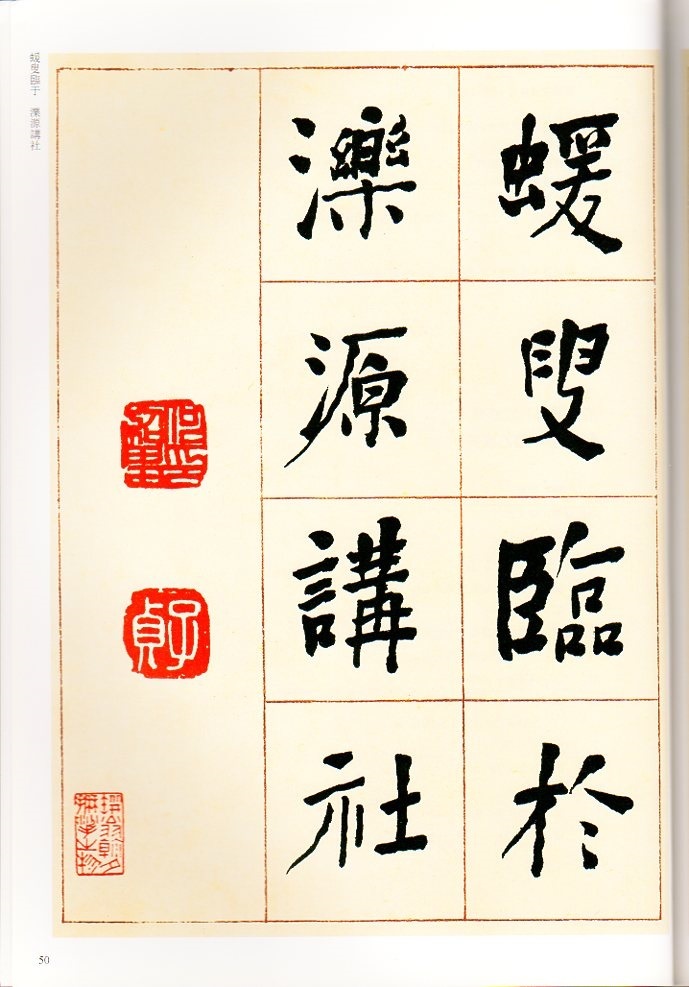 蝯叟臨於
濼源講社
子貞
蝯叟臨于 濼源講社
50